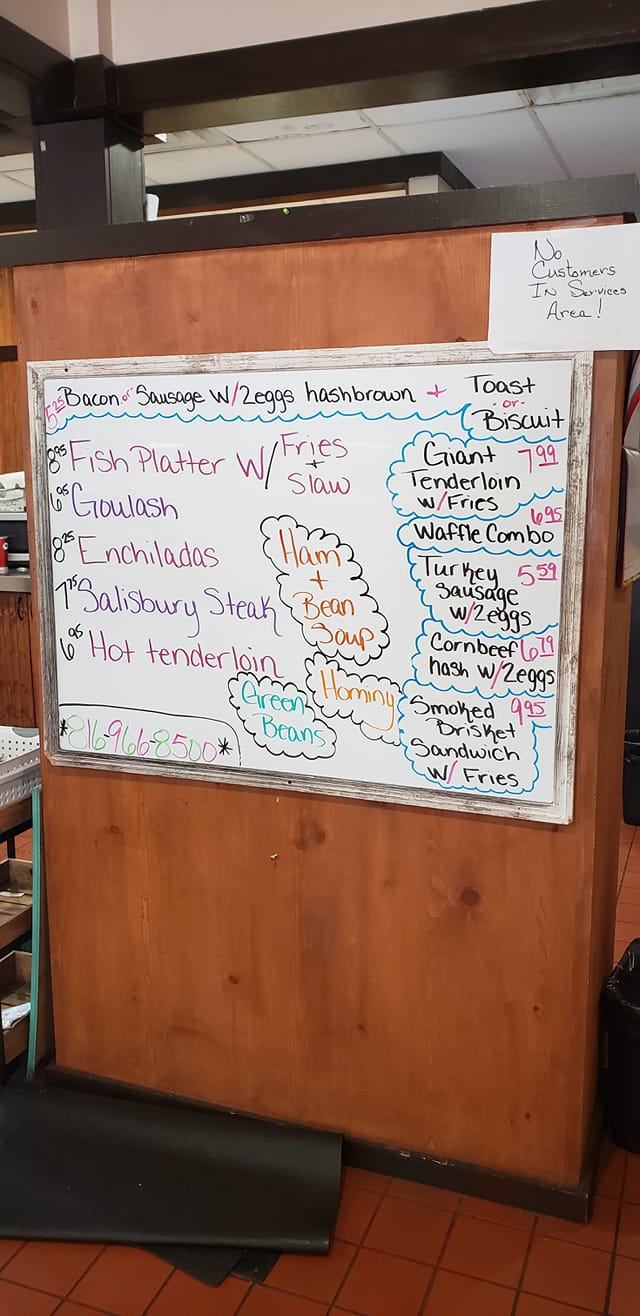 No
Customers
In Services
Area!
5.25 Bacon or Sausage W/2eggs hashbrown + Toast
-or-
Biscuit
8.95 Fish Platter W/ Fries
+
Slaw
6.95 Goulash
8.25 Enchiladas
7.75 Salisbury Steak
6.95 Hot tenderloin
*816-966-8500*
Ham
+
Bean
Soup
Hominy
Green
Beans
Giant 7.99
Tenderloin
w/Fries
6.95
Waffle Combo
Turkey 5.59
Sausage
w/2eggs
Cornbeef 6.79
hash w/2eggs
Smoked 9.95
Brisket
Sandwich
w/ Fries